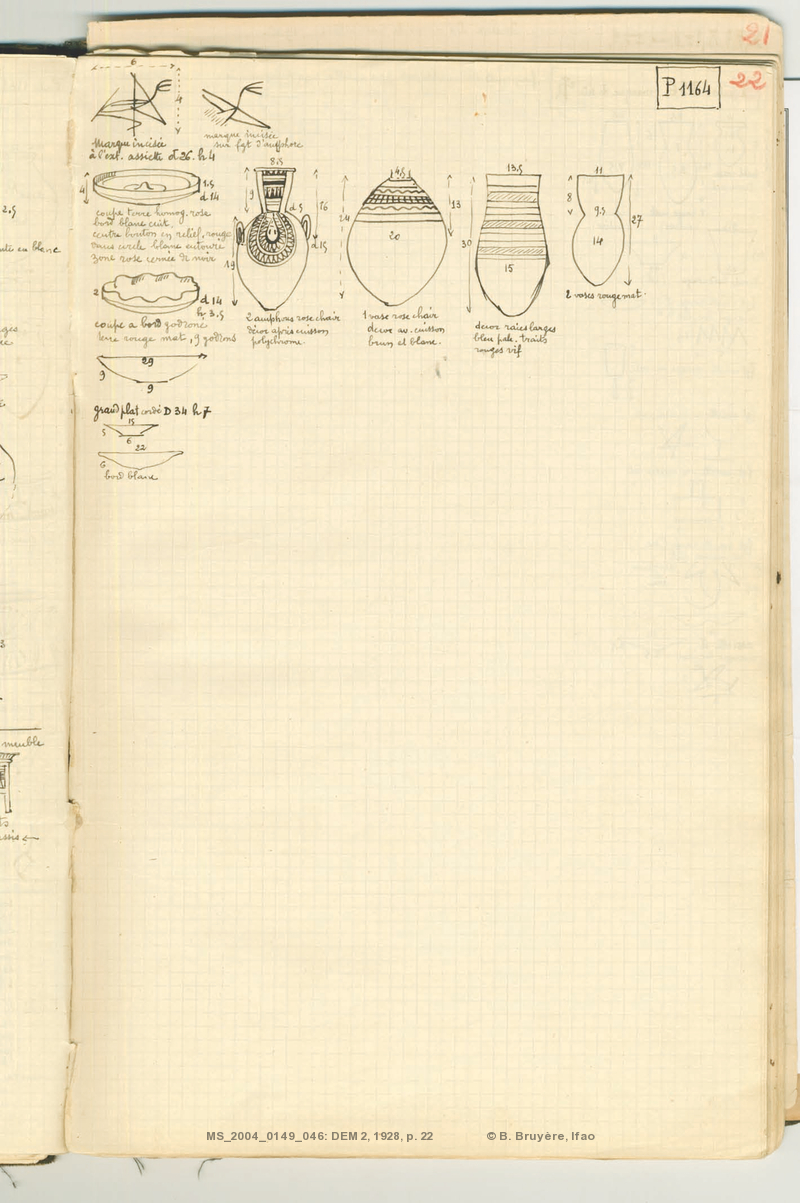 21
22
P 1164
6
4
Marque incisée
à l'ext. assiette d 26. h 4
marque incisée
sur fgt d'amphore
4
1.5
d 14
coupe terre homog. rose
bord blanc
centre bouton en relief. rouge
dans cercle blanc entouré
zone rose cernée de noir
2
d 14
h. 3.5
coupe a bord godronné
terre rouge mat, 9 godrons
29
9
9
grand plat D 34 h 7
15
5
6
22
6
bord blanc
8.5
9
16
d 5
d 15
19
2 amphores rose chair
décor après cuisson
polychrome.
4.5
24
13
20
1 vase rose chair
décor av. cuisson
brun et blanc.
13.5
30
15
décor raies larges
bleu pale. traits
rouges vif
11
8
9.5
27
14
2 vases rouge mat.
2.5
en blanc
meuble
MS_2004_0149_046: DEM 2, 1928, p. 22 © B. Bruyère, Ifao